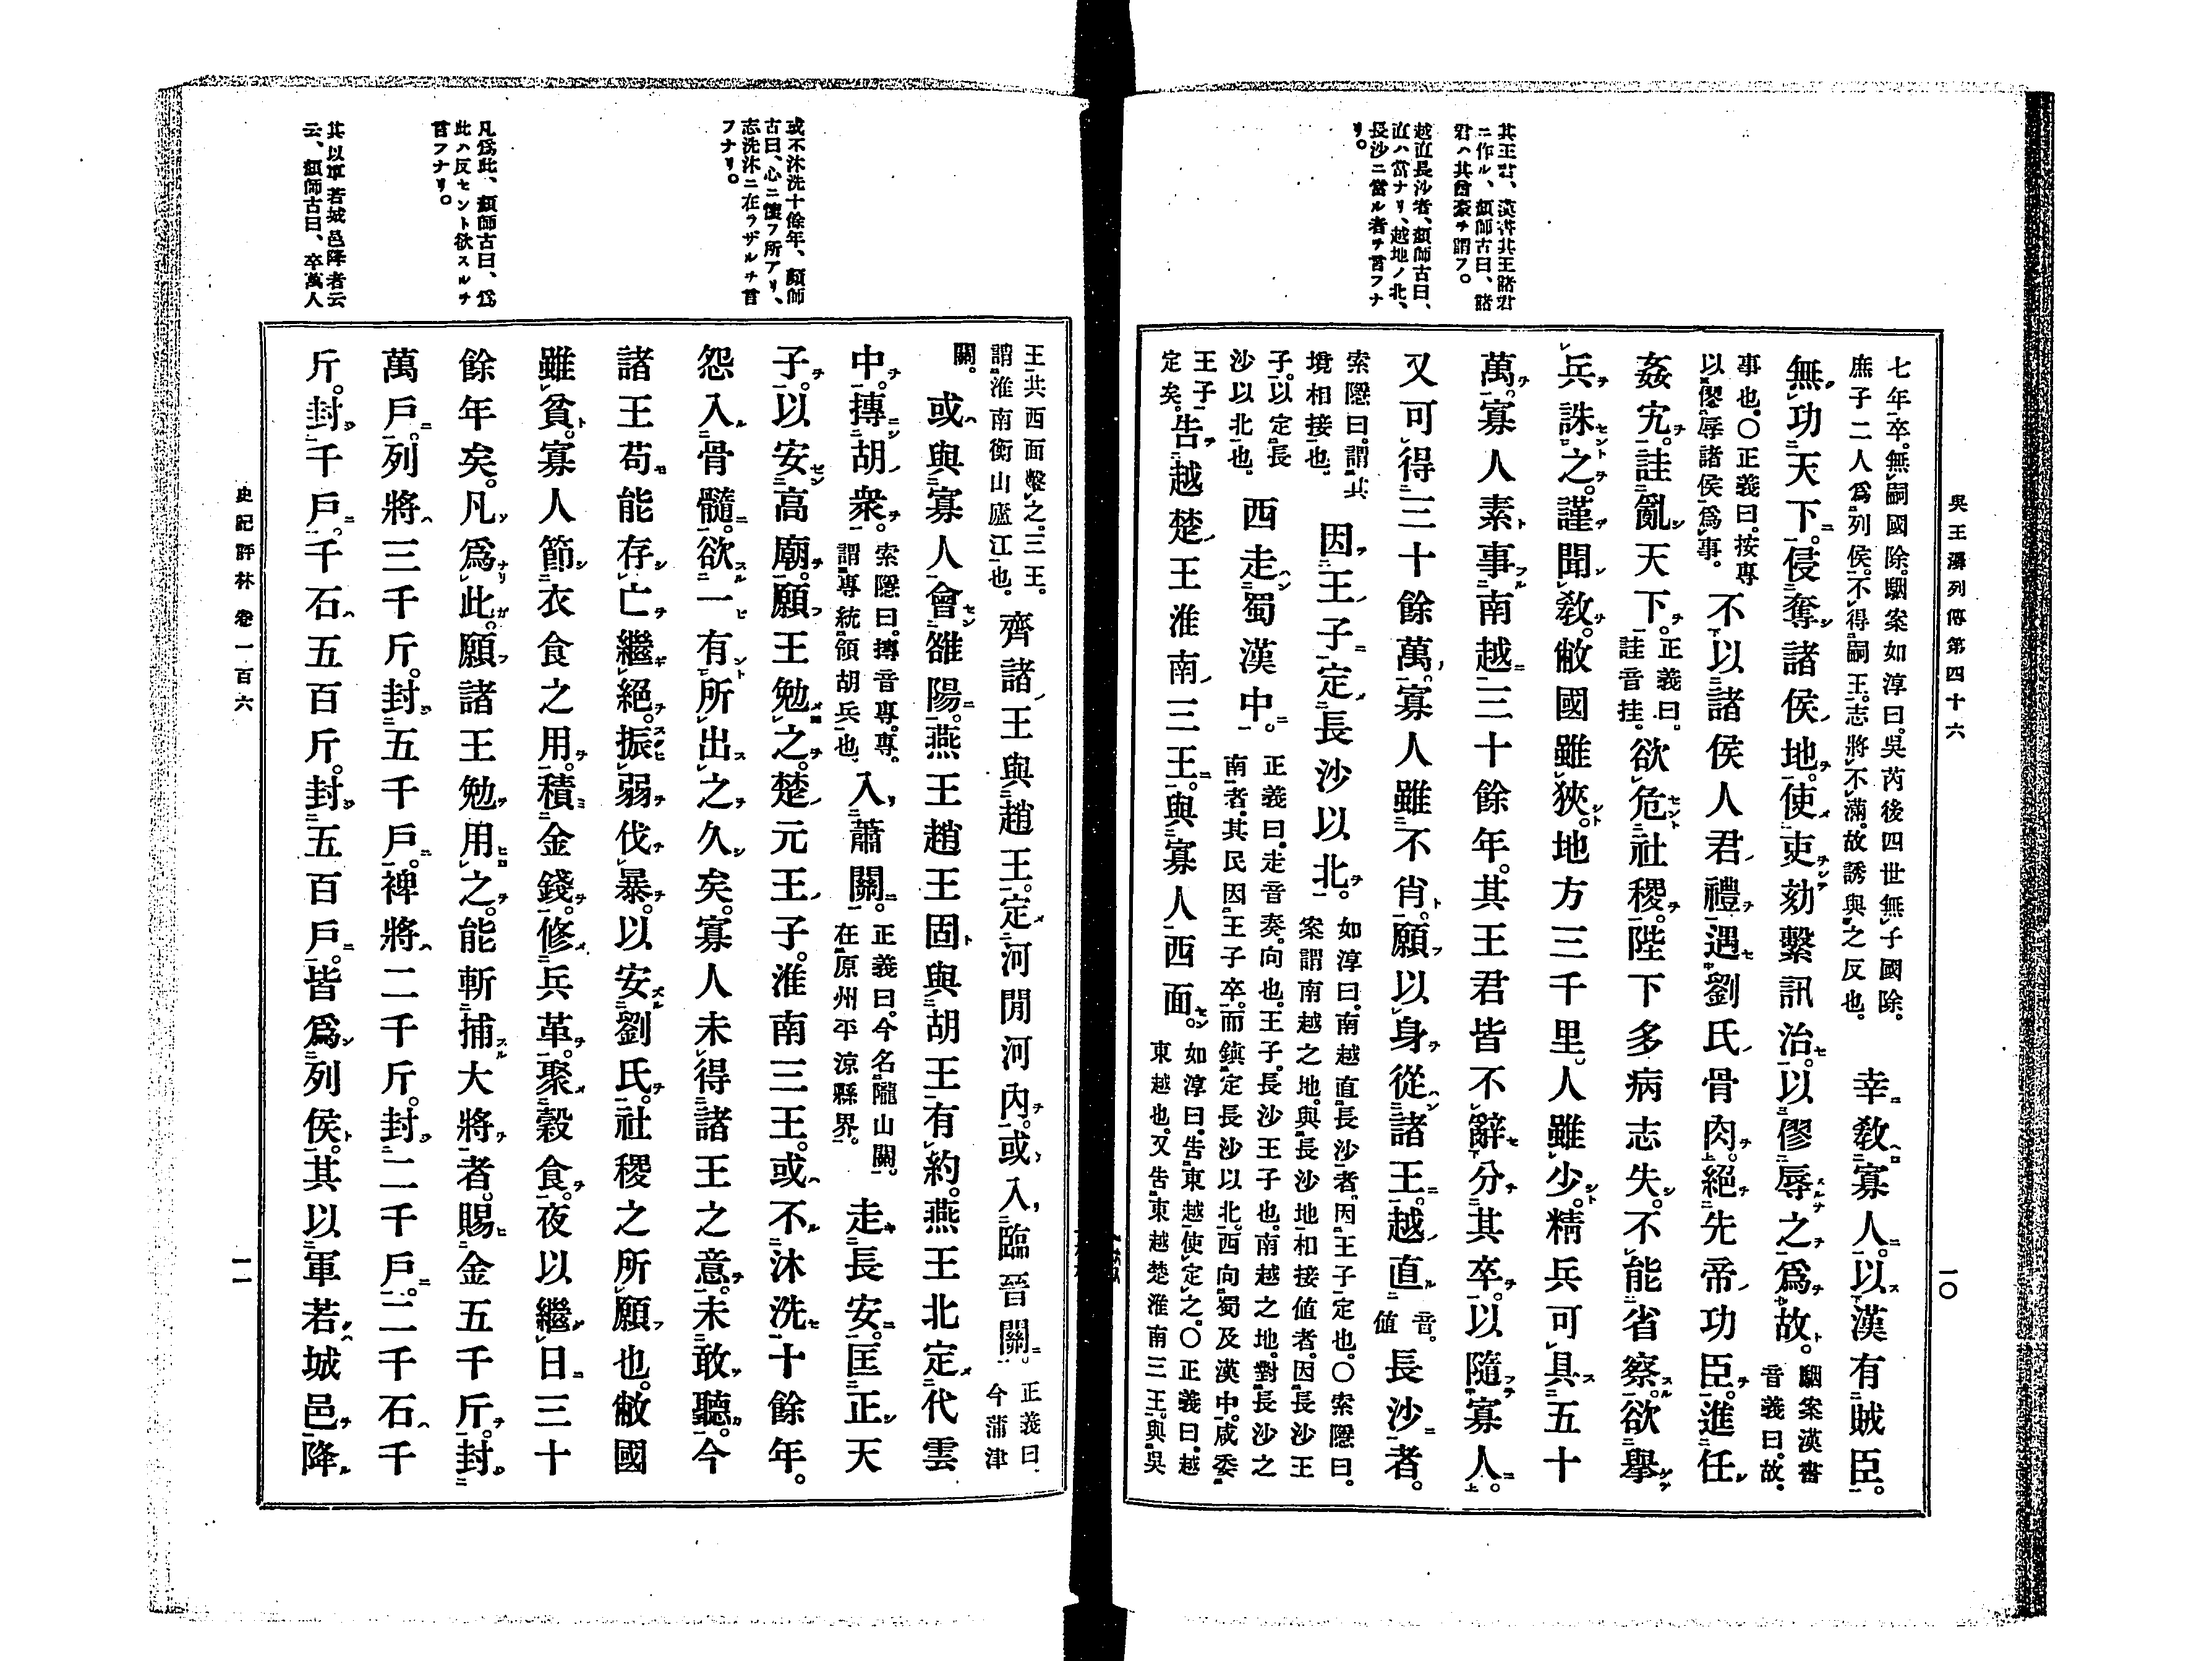 吳王濞列傳第四十六
一〇
其王君、漢書其王諸君
ニ作ル、顏師古曰、諸
君ハ其酋豪チ謂フ。
越直長沙者、顏師古曰、
直ハ當ナリ、越地ノ北、
長沙ニ當ル者チ言フナ
リ。
七年卒。無嗣國除。駰案如淳曰。吳芮後四世無子國除。
庶子二人爲列侯。不得嗣王。志將不滿。故誘與之反也。
幸敎寡人。以漢有賊臣。
無功天下。侵奪諸侯地。使吏劾繫訊治。以僇辱之爲故。
駰案漢書
音義曰。故。
事也。〇正義曰。按專
以僇辱諸侯爲事。
不以諸侯人君禮遇劉氏骨肉。絕先帝功臣。進任
姦宄。詿亂天下。
正義曰。
詿音挂。
欲危社稷。陛下多病志失。不能省察。欲擧
兵誅之。謹聞敎。敝國雖狹。地方三千里。人雖少。精兵可具五十
萬。寡人素事南越三十餘年。其王君皆不辭分其卒。以隨寡人。
又可得三十餘萬。寡人雖不肖。願以身從諸王。越直
音。
値
長沙者。
索隱曰。謂其
境相接也。
因王子定長沙以北。
如淳曰。南越直長沙者。因王子定也。〇索隱曰。
案謂南越之地。與長沙地相接値者。因長沙王
子。以定長
沙以北也。
西走蜀漢中。
正義曰。走音奏。向也。王子。長沙王子也。南越之地。對長沙之
南者。其民因王子卒。而鎭定長沙以北。西向蜀及漢中。咸委
王子
定矣。
告越楚王淮南三王。與寡人西面。
如淳曰。告東越使定之。〇正義曰。越
東越也。又告東越楚淮南三王。與吳
王共西面擊之。三王。
謂淮南衡山廬江也。
齊諸王與趙王。定河閒河內。或入臨晉關。
正義曰。
今蒲津
關。
或與寡人會雒陽。燕王趙王固與胡王有約。燕王北定代雲
中。摶胡衆。
索隱曰。摶音專。專。
謂專統領胡兵也。
入蕭關。
正義曰。今名隴山關。
在原州平涼縣界。
走長安。匡正天
子。以安高廟。願王勉之。楚元王子。淮南三王。或不沐洗十餘年。
怨入骨髓。欲一有所出之久矣。寡人未得諸王之意。未敢聽。今
諸王苟能存亡繼絕。振弱伐暴。以安劉氏。社稷之所願也。敝國
雖貧。寡人節衣食之用。積金錢。修兵革。聚穀食。夜以繼日三十
餘年矣。凡爲此。願諸王勉用之。能斬捕大將者。賜金五千斤。封
萬戶。列將三千斤。封五千戶。裨將二千斤。封二千戶。二千石千
斤。封千戶。千石五百斤。封五百戶。皆爲列侯。其以軍若城邑降
或不沐洗十餘年、顏師
古曰、心ニ懷フ所アリ、
志洗沐ニ在ラザルチ言
フナリ。
凡爲此、顏師古曰、爲
此ハ反セント欲スルチ
言フナリ。
其以軍若城邑降者云
云、顏師古曰、卒萬人
史記評林 卷一百六
一一